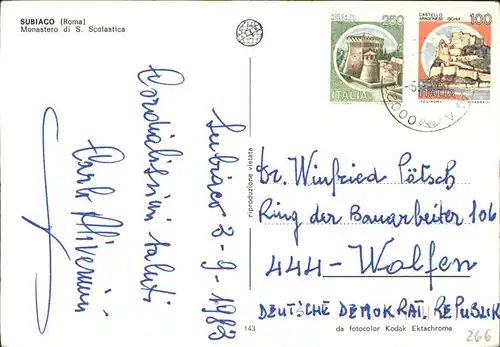 SUBIACO (Roma)
Monastero di S. Scolastica
250
ITALIA
CASTELLO
ARAGONESE - ISCHIA
100
ITALIA
Subiaco 2-9-1983
Cordialissimi saluti
Carlo
riproduzione vietata
Dr. Winfried Pötsch
Ring der Bauarbeiter 106
444 - Wolfen
DEUTSCHE DEMOKRAT. REPUBLIK
143
da fotocolor Kodak Ektachrome
266